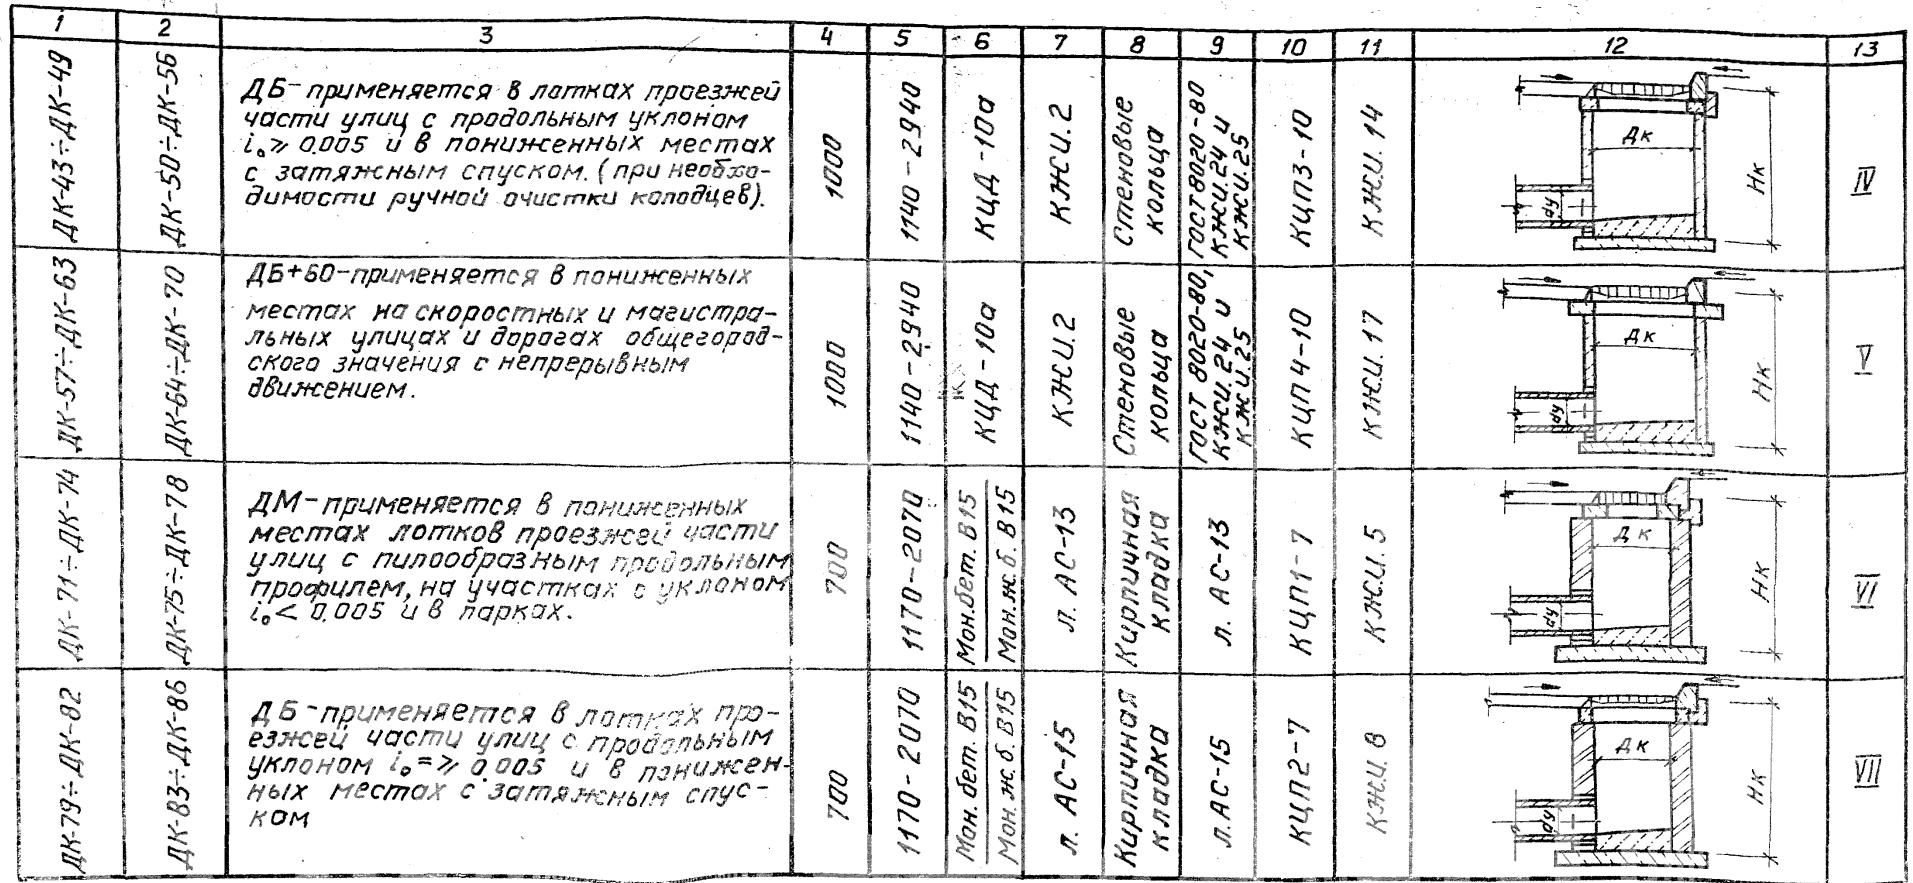 1 2 3 4 5 6 7 8 9 10 11 12 13
ДК-43÷ДК-49
ДК-50÷ДК-56
ДБ-применяется в лотках проезжей
части улиц с продольным уклоном
i₀⩾0.005 и в пониженных местах
с затяжным спуском. (при необхо-
димости ручной очистки колодцев).
1000
1140-2940
КЦД-10а
КЖИ.2
Стеновые
кольца
ГОСТ 8020-80
КЖИ.24 и
КЖИ.25
КЦП3-10
КЖИ.14
Дк
dу
Нк
IV
ДК-57÷ДК-63
ДК-64÷ДК-70
ДБ+БО-применяется в пониженных
местах на скоростных и магистра-
льных улицах и дорогах общегород-
ского значения с непрерывным
движением.
1000
1140-2940
КЦД-10а
КЖИ.2
Стеновые
кольца
ГОСТ 8020-80,
КЖИ.24 и
КЖИ.25
КЦП4-10
КЖИ.17
Дк
dу
Нк
V
ДК-71÷ДК-74
ДК-75÷ДК-78
ДМ-применяется в пониженных
местах лотков проезжей части
улиц с пилообразным продольным
профилем, на участках с уклоном
i₀<0.005 и в парках.
700
1170-2070
Мон.бет. В15
Мон.ж.б. В15
л. АС-13
Кирпичная
кладка
л. АС-13
КЦП1-7
КЖИ.5
Дк
dу
Нк
VI
ДК-79÷ДК-82
ДК-83÷ДК-86
ДБ-применяется в лотках про-
езжей части улиц с продольным
уклоном i₀=⩾0.005 и в понижен-
ных местах с затяжным спус-
ком
700
1170-2070
Мон. бет. В15
Мон. ж.б. В15
л. АС-15
Кирпичная
кладка
л.АС-15
КЦП2-7
КЖИ.8
Дк
dу
Нк
VII